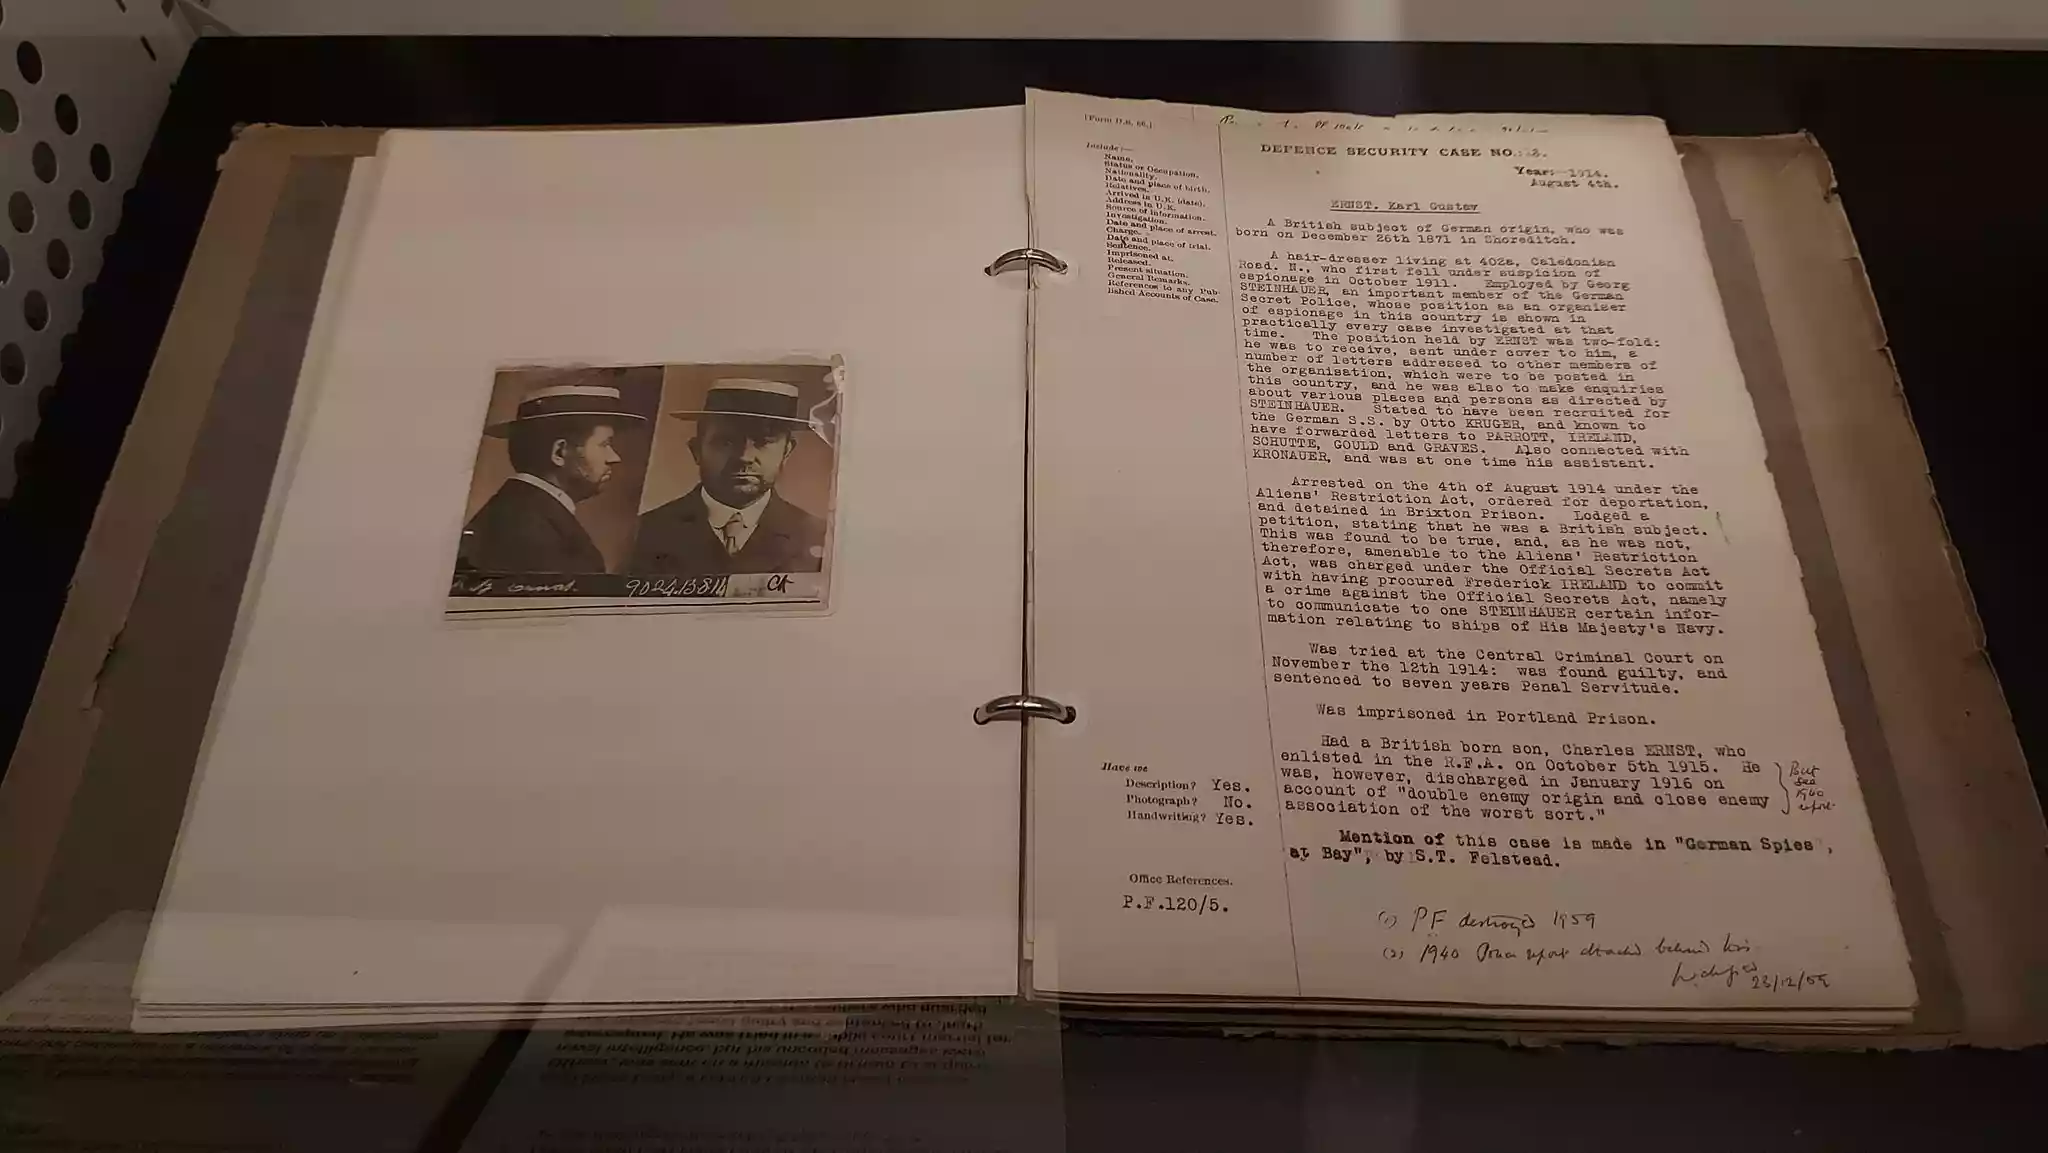 9024.13814
CA
[Form D.S. 66.]
DEFENCE SECURITY CASE NO.
Year:- 1914.
August 4th.
Include:—
Name,
Status or Occupation.
Nationality.
Date and place of birth.
Relatives.
Arrived in U.K. (date).
Address in U.K.
Source of information.
Investigation.
Date and place of arrest.
Charge.
Date and place of trial.
Sentence.
Imprisoned at.
Released.
Present situation.
General Remarks.
References to any Pub-
lished Accounts of Case.
ERNST. Karl Gustav
A British subject of German origin, who was
born on December 26th 1871 in Shoreditch.
A hair-dresser living at 402a, Caledonian
Road. N., who first fell under suspicion of
espionage in October 1911. Employed by Georg
STEINHAUER, an important member of the German
Secret Police, whose position as an organiser
of espionage in this country is shown in
practically every case investigated at that
time. The position held by ERNST was two-fold:
he was to receive, sent under cover to him, a
number of letters addressed to other members of
the organisation, which were to be posted in
this country, and he was also to make enquiries
about various places and persons as directed by
STEINHAUER. Stated to have been recruited for
the German S.S. by Otto KRUGER, and known to
have forwarded letters to PARROTT, IRELAND,
SCHUTTE, GOULD and GRAVES. Also connected with
KRONAUER, and was at one time his assistant.
Arrested on the 4th of August 1914 under the
Aliens' Restriction Act, ordered for deportation,
and detained in Brixton Prison. Lodged a
petition, stating that he was a British subject.
This was found to be true, and, as he was not,
therefore, amenable to the Aliens' Restriction
Act, was charged under the Official Secrets Act
with having procured Frederick IRELAND to commit
a crime against the Official Secrets Act, namely
to communicate to one STEINHAUER certain infor-
mation relating to ships of His Majesty's Navy.
Was tried at the Central Criminal Court on
November the 12th 1914: was found guilty, and
sentenced to seven years Penal Servitude.
Was imprisoned in Portland Prison.
Had a British born son, Charles ERNST, who
enlisted in the R.F.A. on October 5th 1915. He
was, however, discharged in January 1916 on
account of "double enemy origin and close enemy
association of the worst sort."
But
see
1940
report.
Mention of this case is made in "German Spies
at Bay", by S.T. Felstead.
Have we
Description? Yes.
Photograph? No.
Handwriting? Yes.
Office References.
P.F.120/5.
(1) PF destroyed 1959
(2) 1940 Police report attached behind this
23/12/59